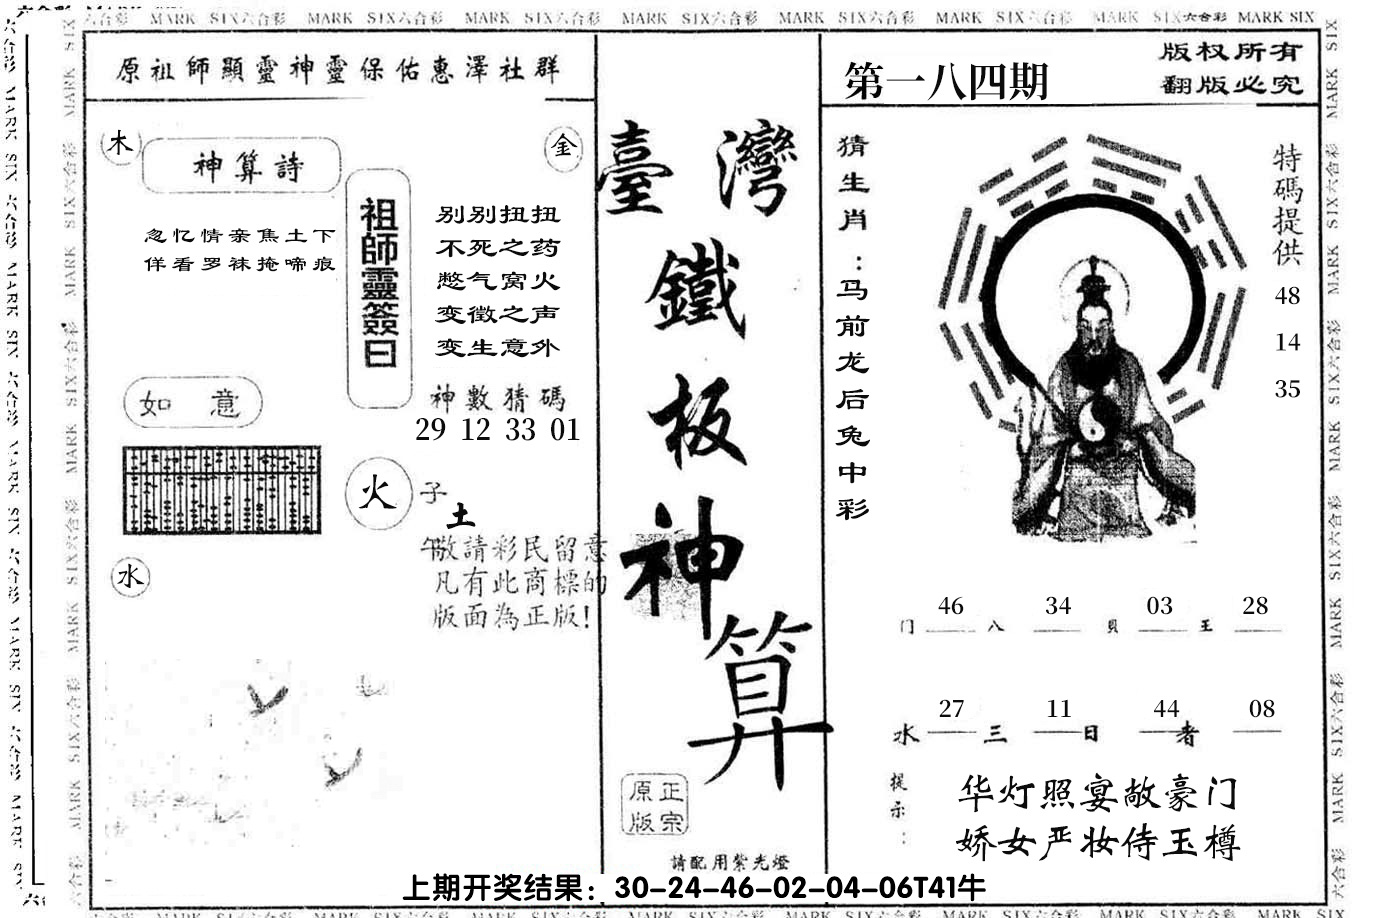 MARK SIX六合彩 MARK SIX六合彩 MARK SIX六合彩 MARK SIX六合彩 MARK SIX六合彩 MARK SIX六合彩 MARK SIX六合彩 MARK SIX
原祖師顯靈神靈保佑惠澤社群
木
神算詩
金
忽忆情亲焦土下
佯看罗袜掩啼痕
祖師靈簽曰
别别扭扭
不死之药
憋气窝火
变徵之声
变生意外
如意
神數猜碼
29 12 33 01
火
子
土
午
水
敬請彩民留意
凡有此商標的
版面為正版!
臺灣
鐵
板
神
算
原正
版宗
請配用紫光燈
第一八四期
版权所有
翻版必究
猜生肖:马前龙后兔中彩
特碼提供
48
14
35
门 46 八 34 貝 03 王 28
水 27 三 11 日 44 者 08
提示:
华灯照宴敞豪门
娇女严妆侍玉樽
上期开奖结果：30-24-46-02-04-06T41牛